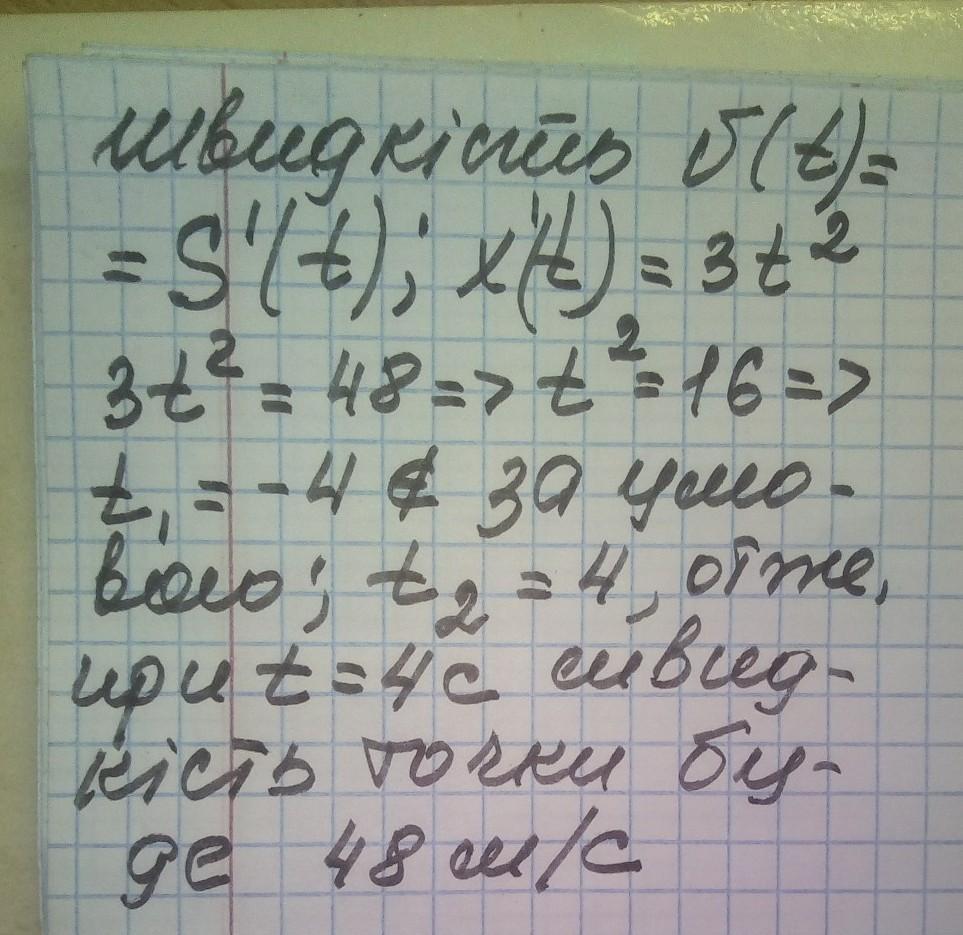 швидкість v(t)=
= S'(t); x'(t) = 3t²
3t² = 48 => t² = 16 =>
t₁ = -4 ∉ за умо-
вою; t₂ = 4, отже,
при t = 4с швид-
кість точки бу-
де 48 м/с